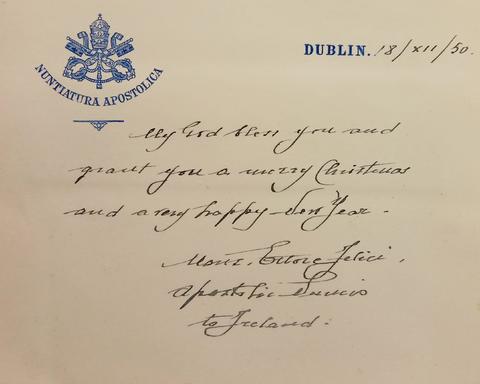 NUNTIATURA APOSTOLICA
DUBLIN. 18/XII/50.
My God bless you and
grant you a merry Christmas
and a very happy New Year.
Monz. Ettore Felici,
Apostolic Nuncio
to Ireland.